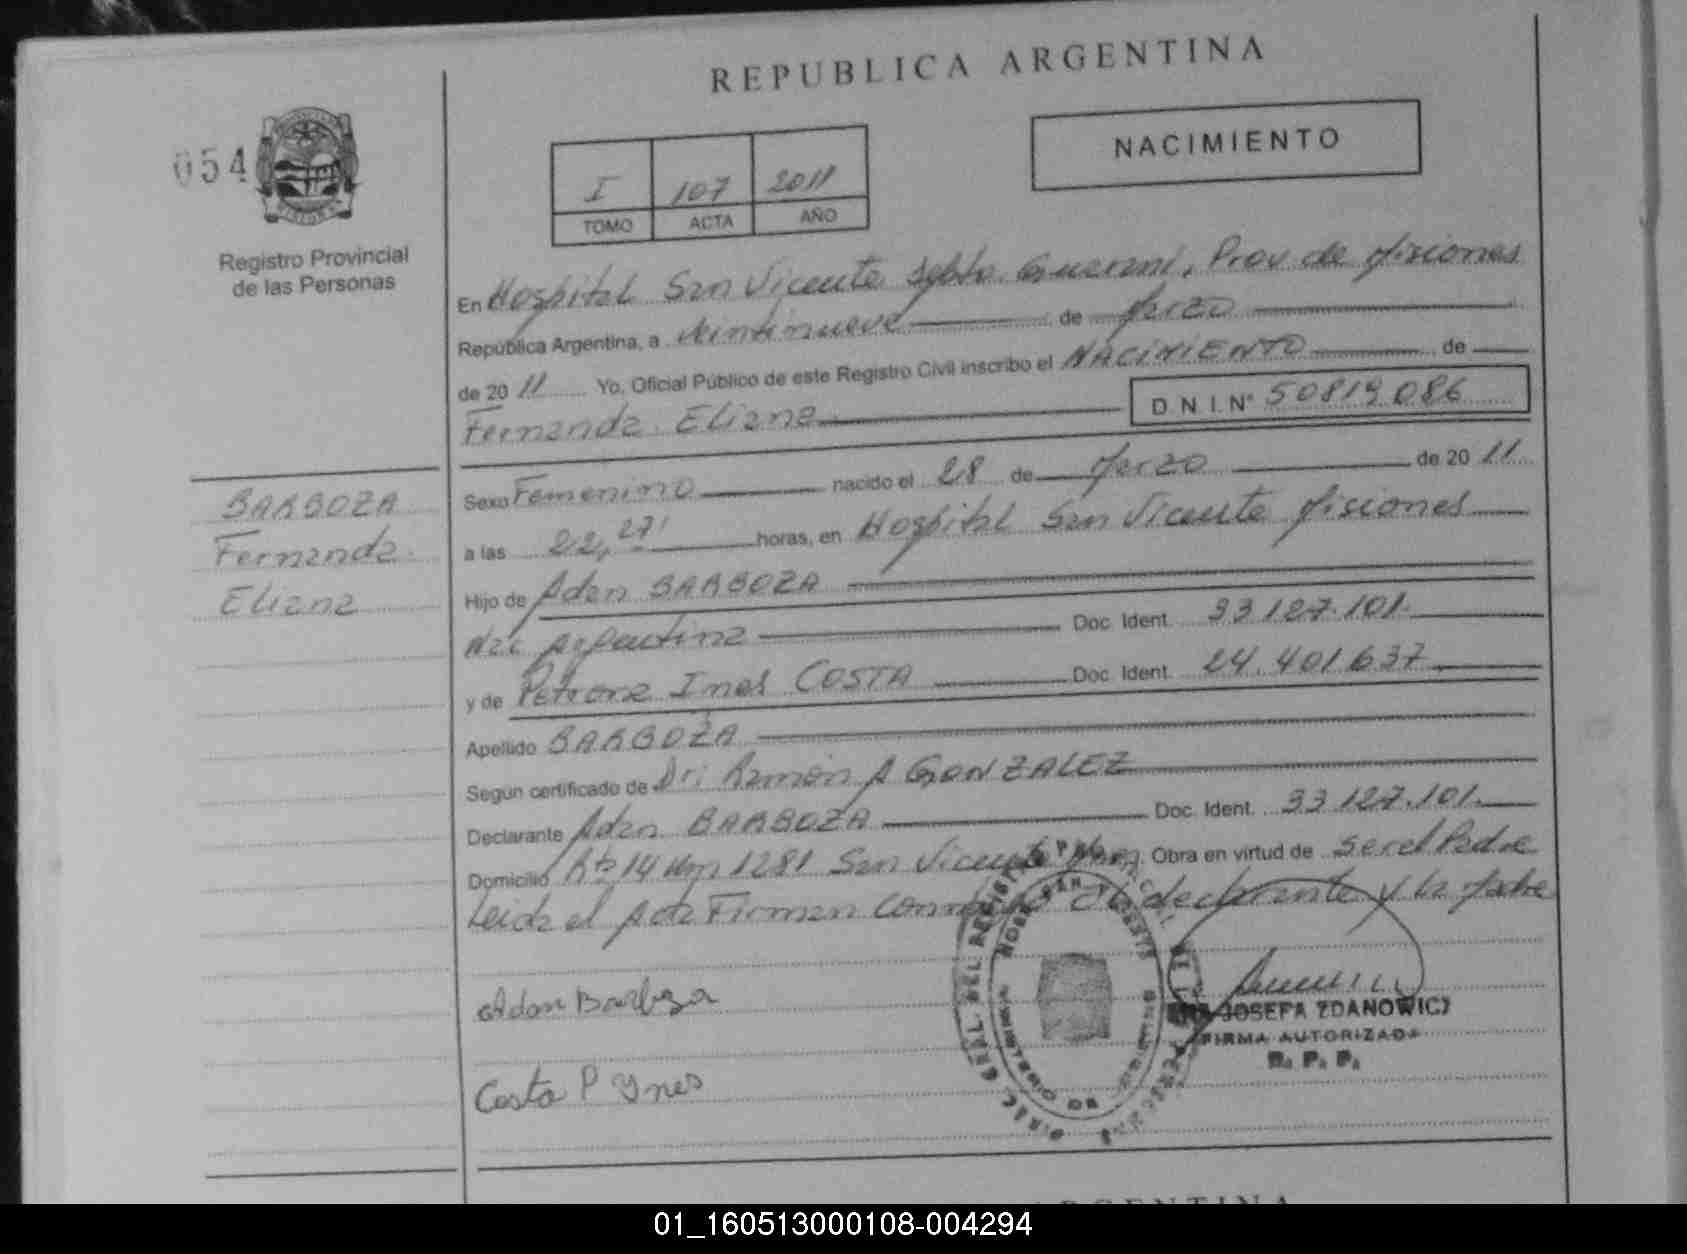 REPUBLICA ARGENTINA
054
NACIMIENTO
I 107 2011
TOMO ACTA AÑO
Registro Provincial
de las Personas
En Hospital San Vicente Dpto. Guarani, Prov de Misiones
República Argentina, a Veintinueve de Marzo
de 20 11 Yo, Oficial Público de este Registro Civil inscribo el NACIMIENTO de
Fernanda Eliana D.N.I. N° 50819086
Sexo Femenino nacido el 28 de Marzo de 20 11
a las 22,27' horas, en Hospital San Vicente Misiones
Hijo de Adan BARBOZA
Nac Argentina Doc. Ident. 33 127.101
y de Petrona Ines COSTA Doc. Ident. 24.401.637
Apellido BARBOZA
Según certificado de Dr: Ramón A GONZALEZ
Declarante Adan BARBOZA Doc. Ident. 33 127.101
Domicilio Rta 14 Km 1281 San Vicente Obra en virtud de Ser el Padre
Leida el Acta Firman Conmigo El declarante y la Madre
BARBOZA
Fernanda
Eliana
Adan Barboza
Costa P Ynes
JOSEFA ZDANOWICZ
FIRMA AUTORIZADA
R. P. P.
ARGENTINA
01_160513000108-004294